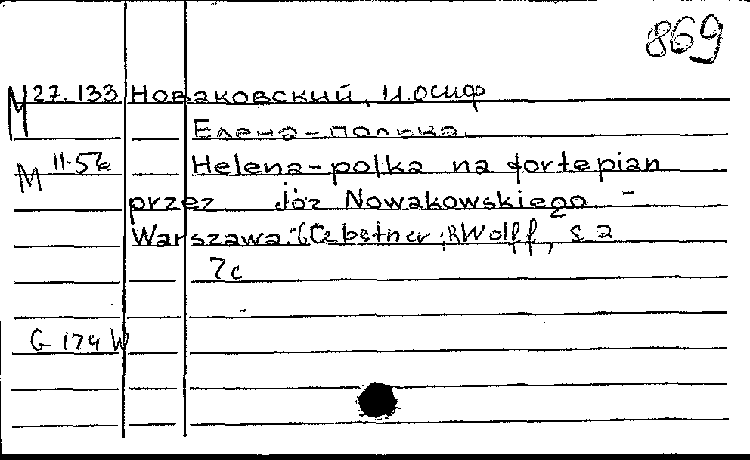 869
М 27.133 Новаковский, Иосиф
Елена-полька.
М 11-56 Helena-polka na fortepian
przez Józ Nowakowskiego -
Warszawa: Gebetner i R Wolff, s a
7c
G 174 W